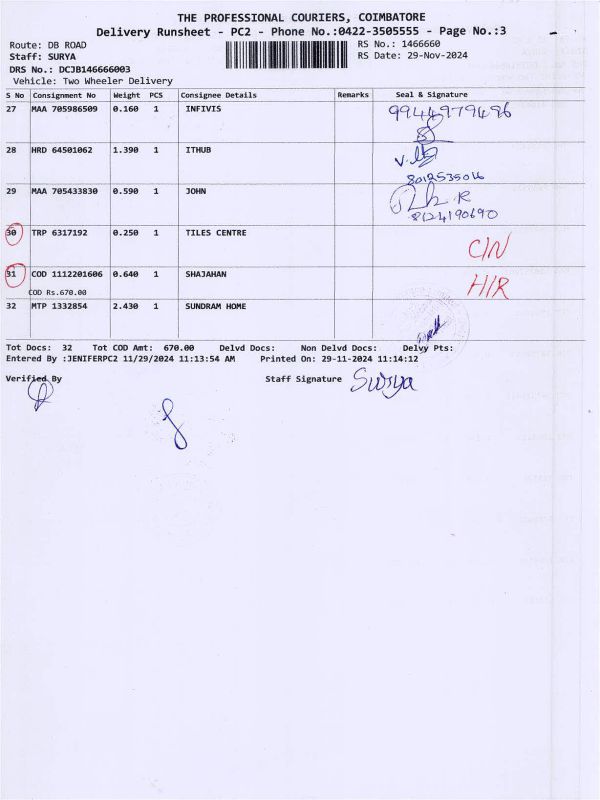 THE PROFESSIONAL COURIERS, COIMBATORE
Delivery Runsheet - PC2 - Phone No.:0422-3505555 - Page No.:3
Route: DB ROAD
RS No.: 1466660
Staff: SURYA
RS Date: 29-Nov-2024
DRS No.: DCJB146666003
Vehicle: Two Wheeler Delivery
S No Consignment No Weight PCS Consignee Details Remarks Seal & Signature
27 MAA 705986509 0.160 1 INFIVIS 9944979496
28 HRD 64501062 1.390 1 ITHUB
8012535016
29 MAA 705433830 0.590 1 JOHN
8124190690
30 TRP 6317192 0.250 1 TILES CENTRE C/N
31 COD 1112201606 0.640 1 SHAJAHAN H/R
COD Rs.670.00
32 MTP 1332854 2.430 1 SUNDRAM HOME
Tot Docs: 32 Tot COD Amt: 670.00 Delvd Docs: Non Delvd Docs: Delvy Pts:
Entered By :JENIFERPC2 11/29/2024 11:13:54 AM Printed On: 29-11-2024 11:14:12
Verified By Staff Signature Surya